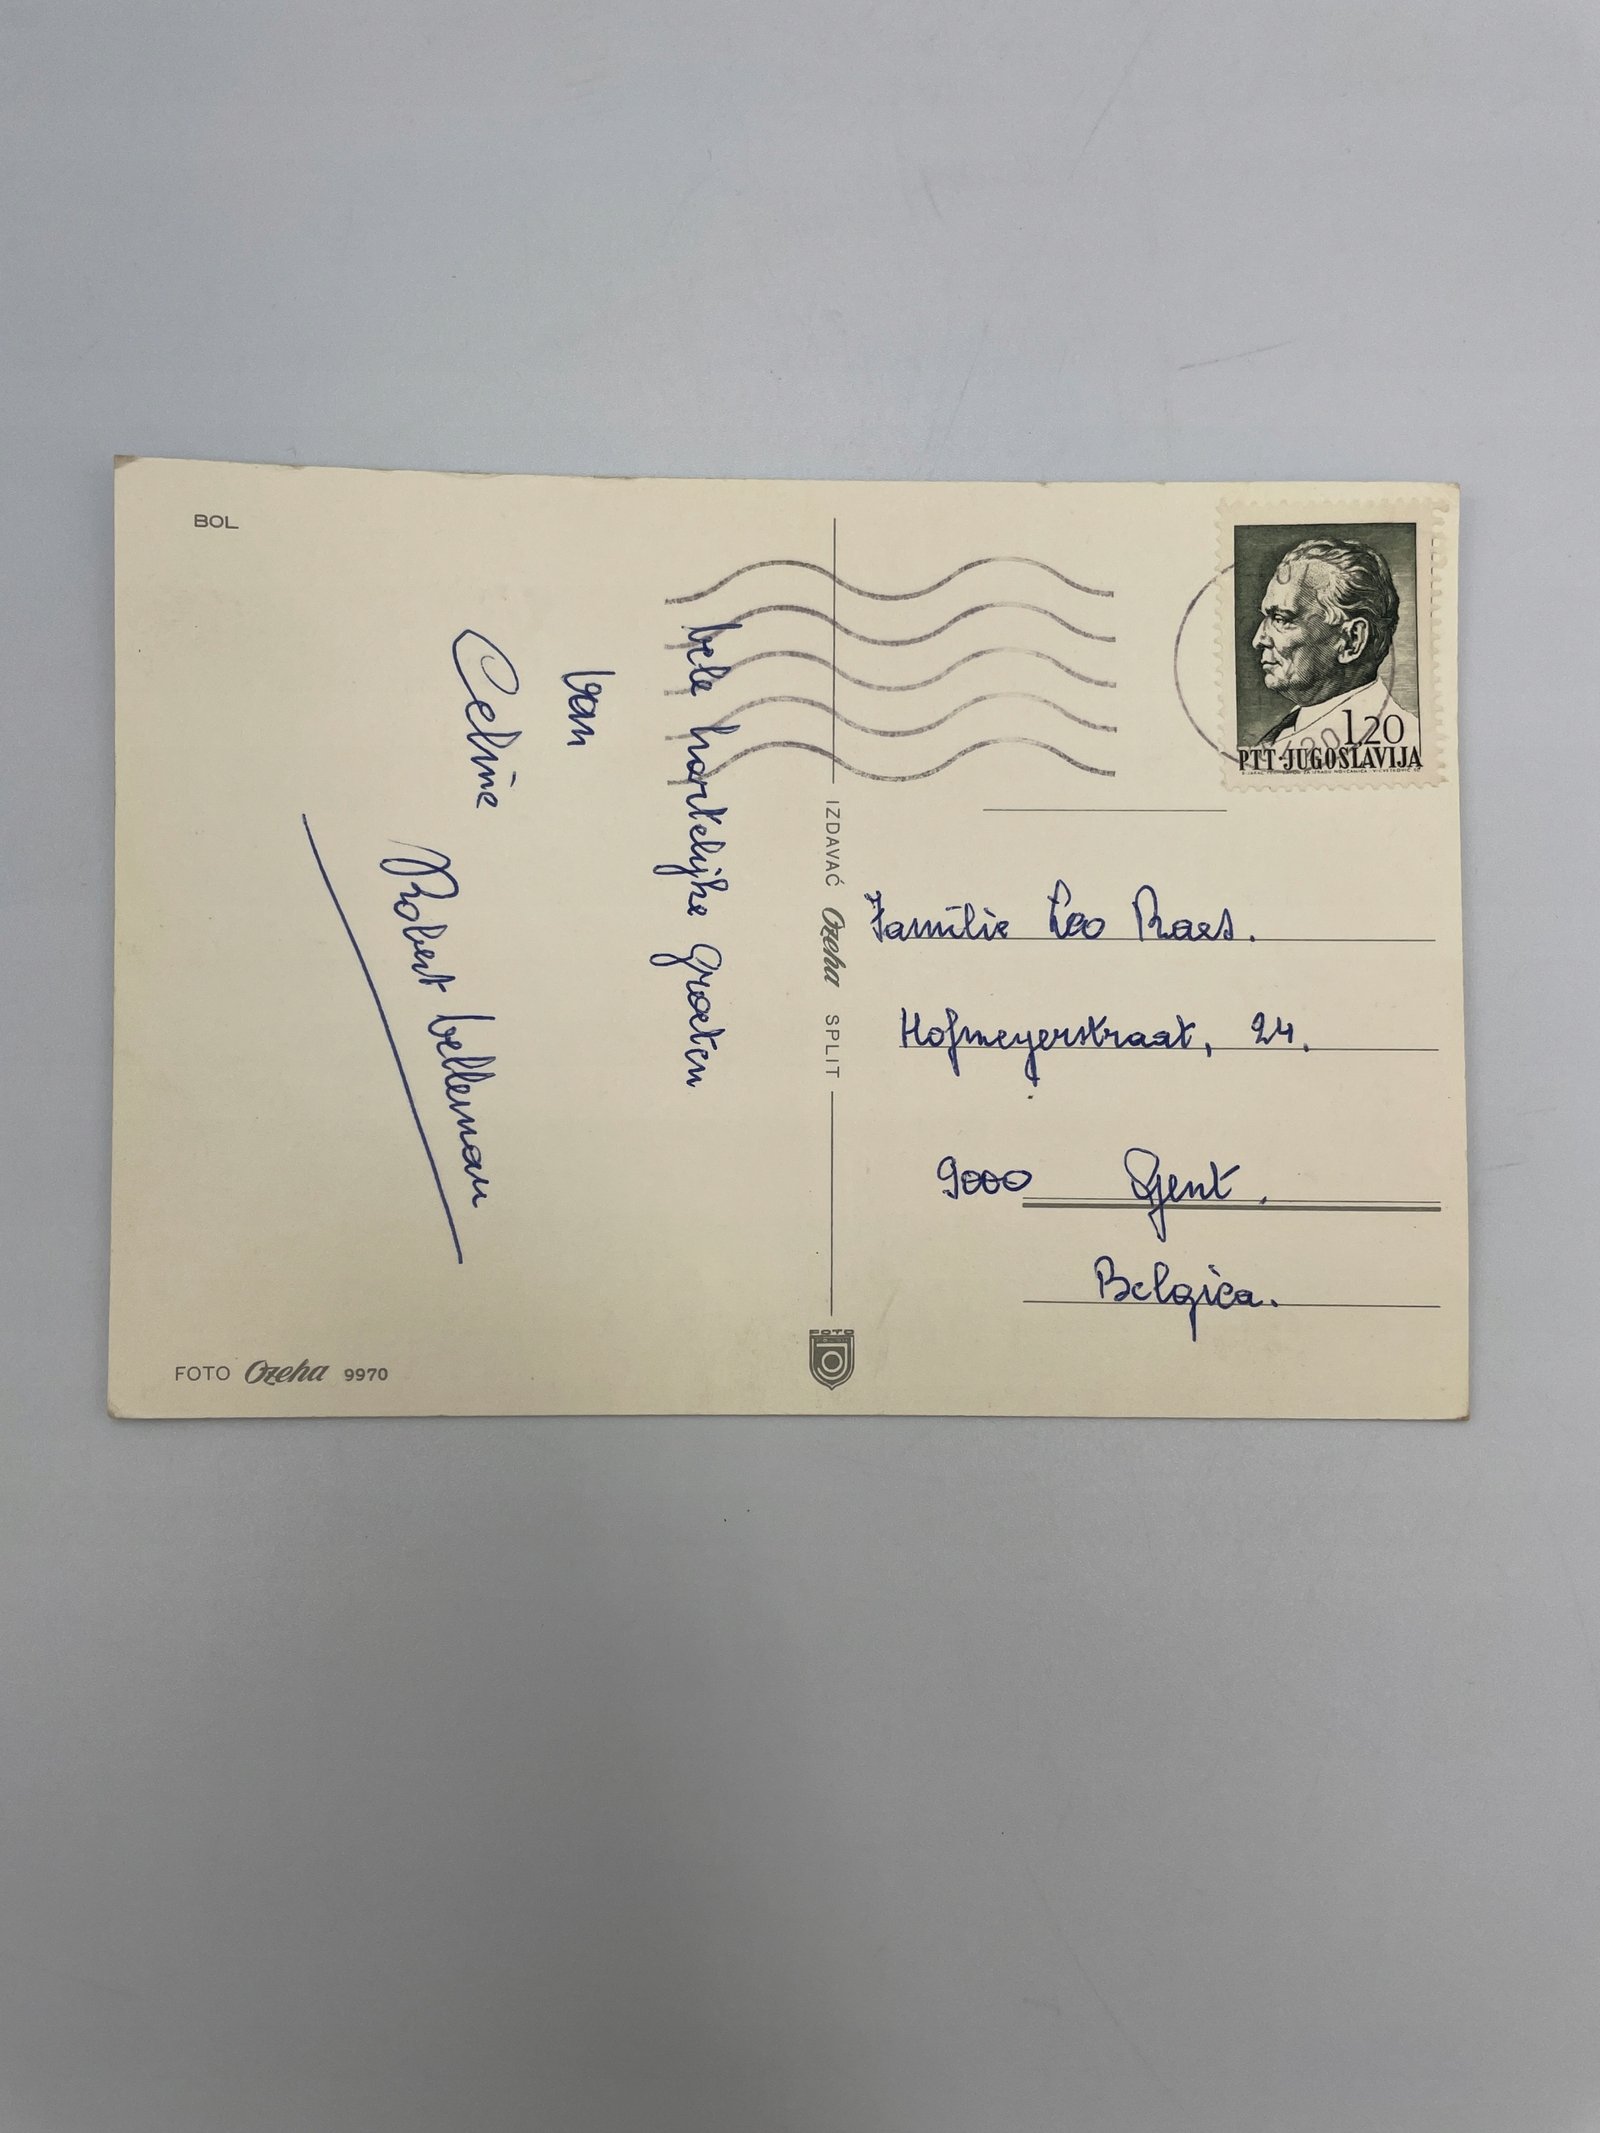 BOL
vele hartelijke groeten
van
Celine
Robert belleman
FOTO Ozeha 9970
IZDAVAČ Ozeha SPLIT
FOTO
1,20
PTT·JUGOSLAVIJA
Familie Leo Raes.
Hofmeyerstraat, 24.
9000 Gent.
Belgica.